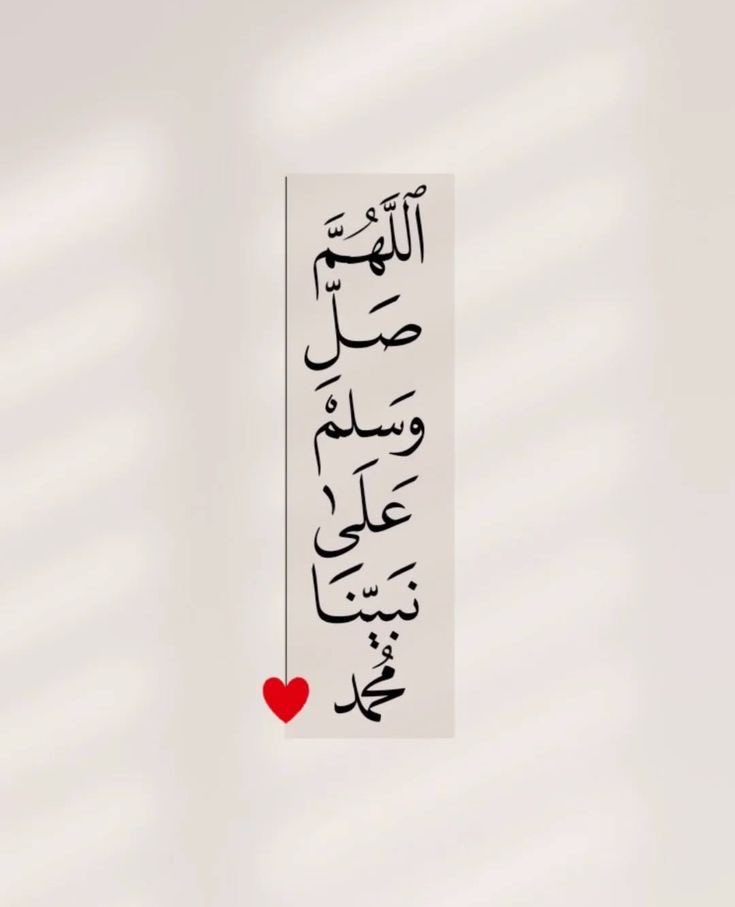 ٱللَّهُمَّ
صَلِّ
وَسَلِمْ
عَلَىٰ
نَبِيِّنَا
مُحَمد